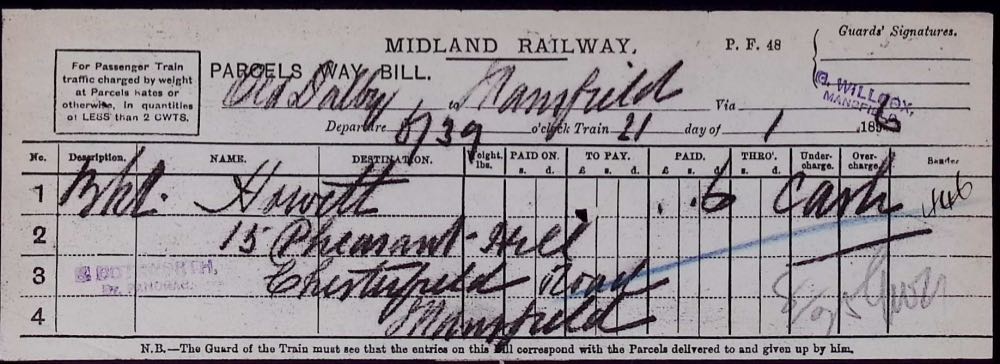 Guards' Signatures.
MIDLAND RAILWAY.
P. F. 48
For Passenger Train
traffic charged by weight
at Parcels Rates or
otherwise, in quantities
of LESS than 2 CWTS.
PARCELS WAY BILL.
Old Dalby to Mansfield Via
G. WILLCOX,
MANSFIELD
Departure 8/39 o'clock Train 21 day of 1 189
No. Description. NAME. DESTINATION. Weight. lbs. PAID ON. TO PAY. PAID. THRO'. Under-charge. Over-charge.
s. d. £ s. d. £ s. d. s. d.
1 Bkt. Howitt . . 6 Cash
2 15 Pheasant Hill
3 Chesterfield Road
4 Mansfield
N.B.—The Guard of the Train must see that the entries on this Bill correspond with the Parcels delivered to and given up by him.